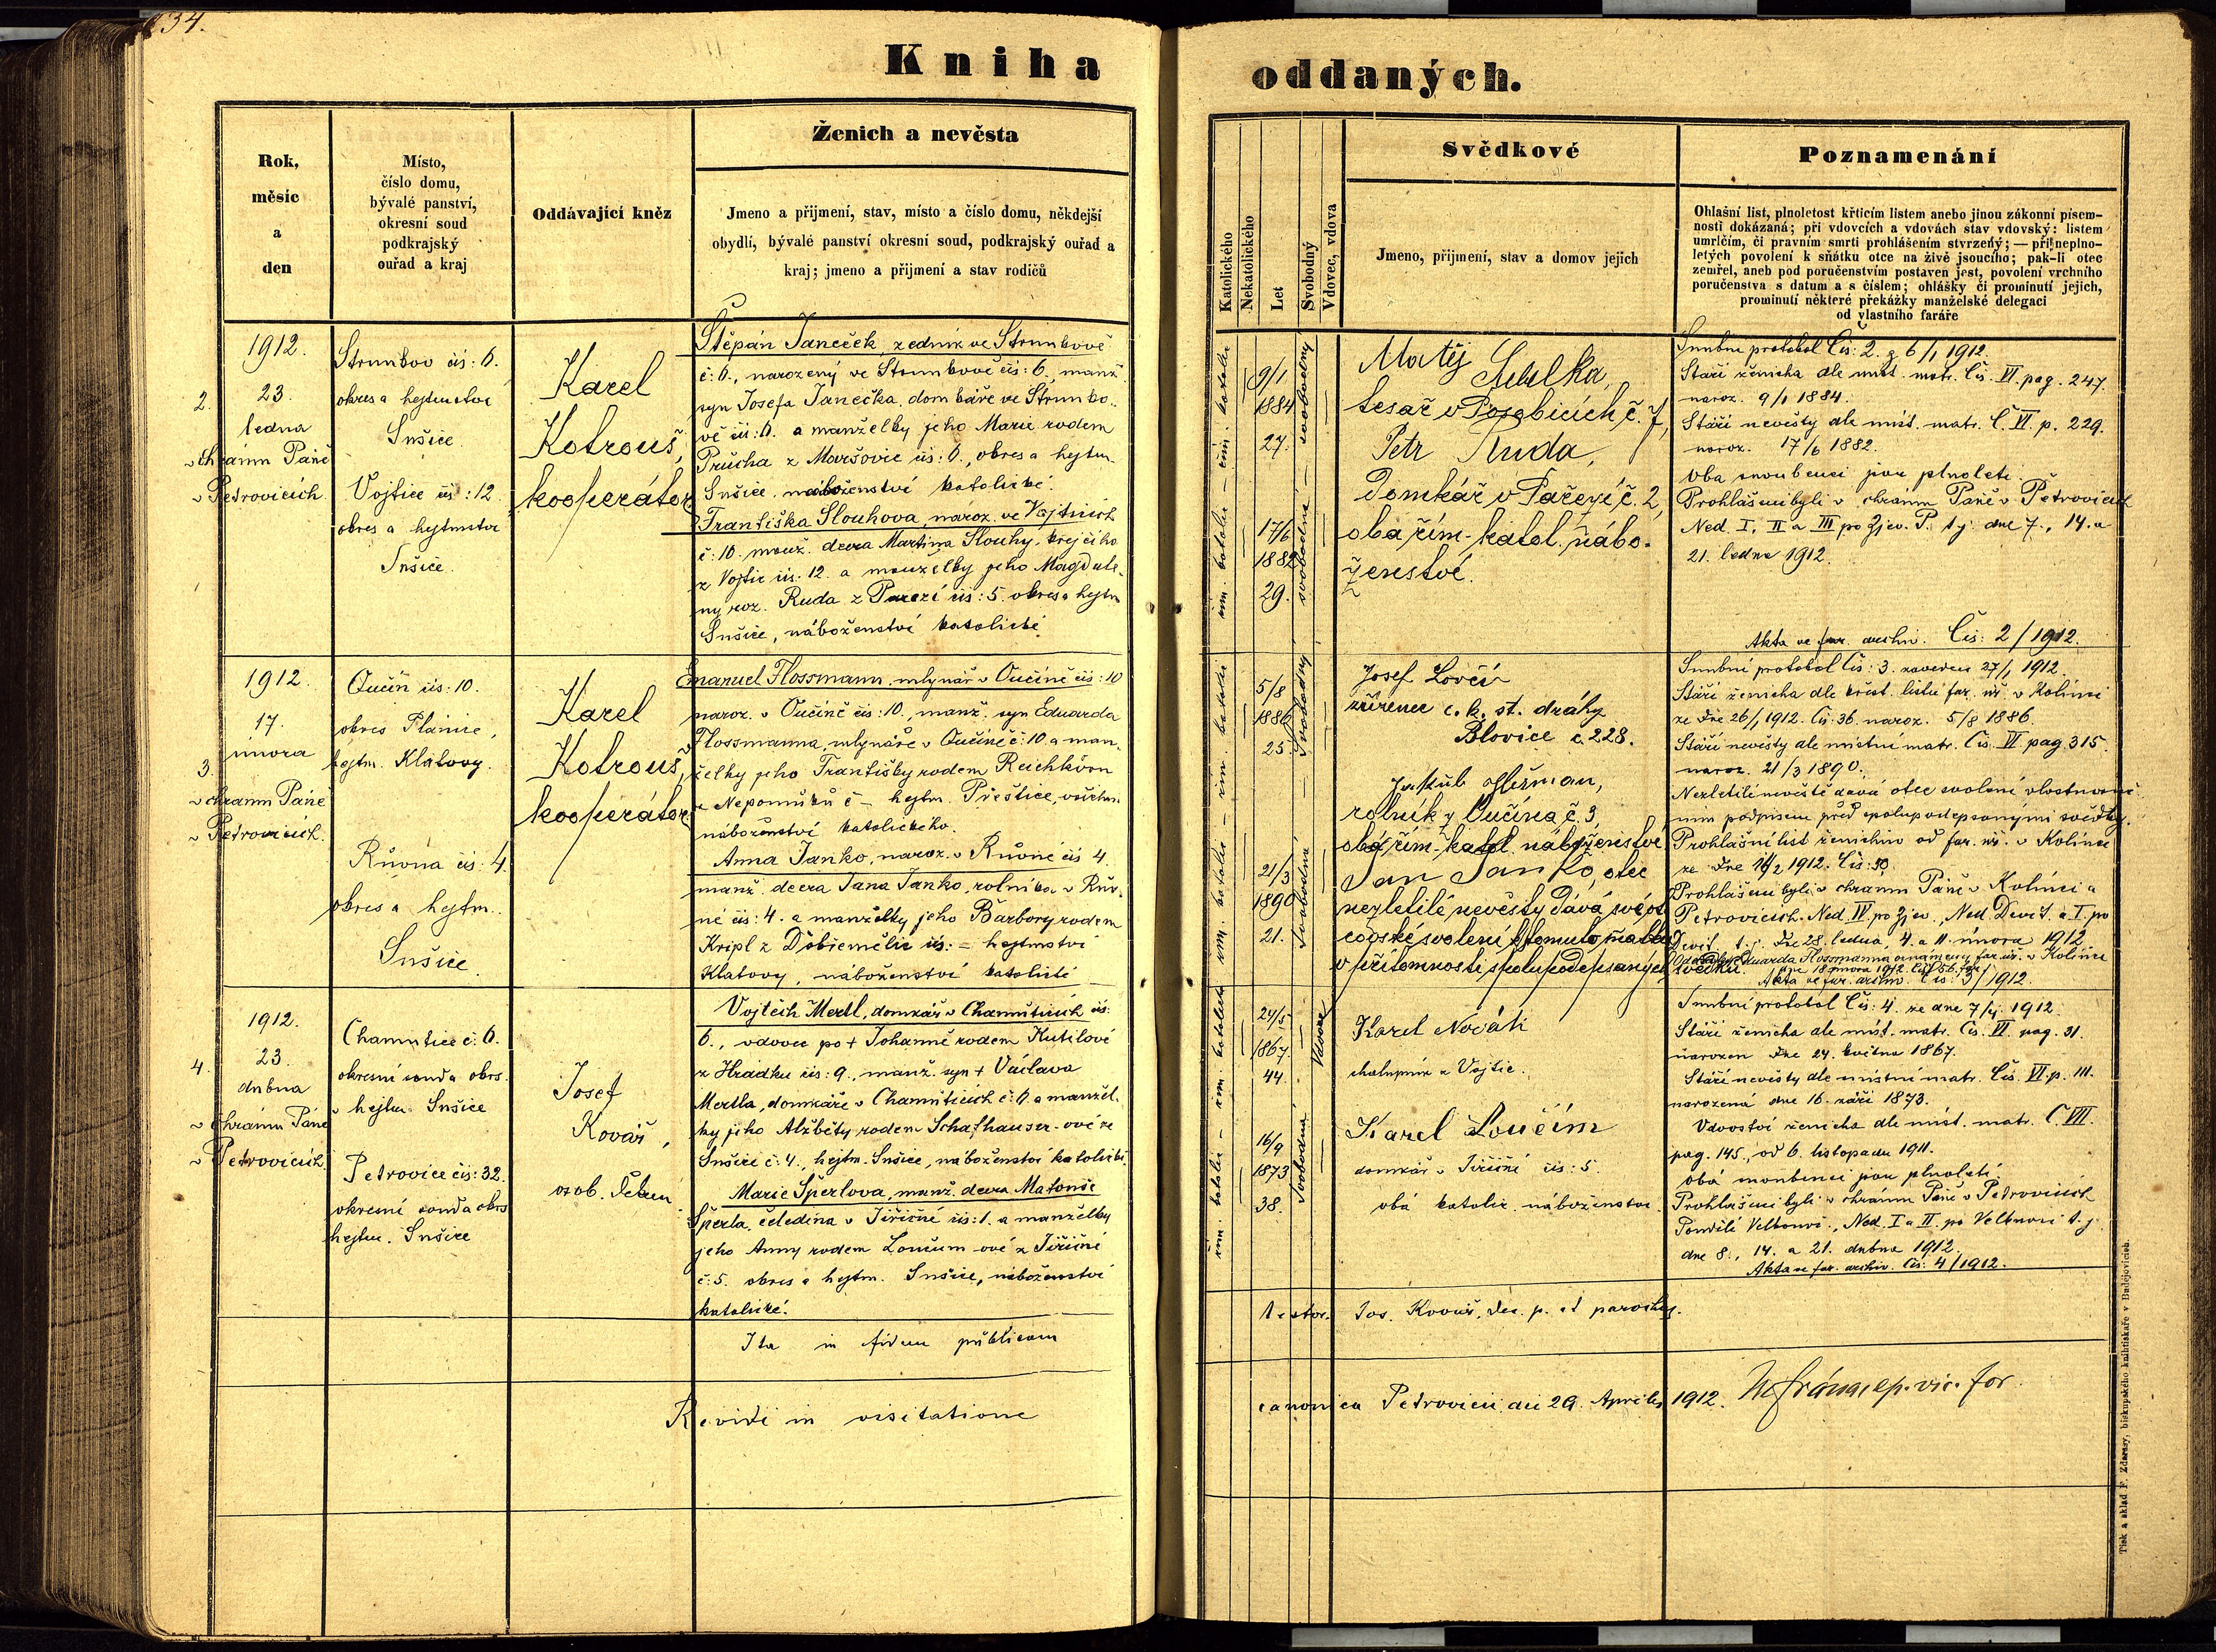 34.
Kniha oddaných.
Rok,
měsíc
a
den
Místo,
číslo domu,
bývalé panství,
okresní soud
podkrajský
ouřad a kraj
Oddávající kněz
Ženich a nevěsta
Jmeno a přijmení, stav, místo a číslo domu, někdejší
obydlí, bývalé panství okresní soud, podkrajský ouřad a
kraj; jmeno a přijmení a stav rodičů
Katolického
Nekatolického
Let
Svobodný
Vdovec, vdova
Svědkové
Jmeno, přijmení, stav a domov jejich
Poznamenání
Ohlašní list, plnoletost křticím listem anebo jinou zákonní písem-
ností dokázaná; při vdovcích a vdovách stav vdovský: listem
umrlčím, či pravním smrti prohlášením stvrzený; — při neplno-
letých povolení k sňátku otce na živě jsoucího; pak-li otec
zemřel, aneb pod poručenstvím postaven jest, povolení vrchního
poručenstva s datum a s číslem; ohlášky či prominutí jejich,
prominutí některé překážky manželské delegaci
od vlastního faráře
2.
1912.
23.
ledna
v chrámu Páně
v Petrovicích
Strunkov čís: 6.
okres a hejtmství
Sušice.
Vojtice čís: 12
okres a hejtmství
Sušice.
Karel
Kotrouš,
kooperátor
Štěpán Janeček, zedník ve Strunkově
č: 6., narozený ve Strunkově čís: 6., manž.
syn Josefa Janečka, domkáře ve Strunko-
vě čís: 6. a manželky jeho Marie rodem
Průcha z Maršovic čís: 6., okres a hejtm.
Sušice, náboženství katolické.
Františka Slouhova, naroz. ve Vojticích
č: 10. manž. dcera Martina Slouhy, krejčího
z Vojtic čís. 12. a manželky jeho Magdale-
ny roz. Ruda z Pařezí čís: 5. okres a hejtm
Sušice, náboženství katolické
řím. katolic - řím. katolic
9/1
1884
27.
17/6
1882
29.
svobodná — svobodný
Matěj
tesař v Posobicích č. 7,
Petr Ruda,
Domkář v Pařezí č. 2,
oba řím-katol. nábo-
ženství.
Snubní protokol Čís: 2. z 6/1 1912.
Stáří ženicha dle míst. matr. Čís. VI. pag. 247.
naroz. 9/1 1884.
Stáří nevěsty dle míst. matr. Č. VI. p. 229.
naroz. 17/6 1882.
Oba snoubenci jsou plnoletí
Prohlášeni byli v chrámu Páně v Petrovicích
Ned. I, II a III po Zjev. P. t. j. dne 7., 14. a
21. ledna 1912.
Akta ve far. archiv. Čís: 2/1912.
3.
1912.
17.
února
v chrámu Páně
v Petrovicích.
Oučín čís: 10.
okres Plánice,
hejtm. Klatovy.
Růvna čís: 4.
okres a hejtm.
Sušice.
Karel
Kotrouš,
kooperátor
Emanuel Flossmann, mlynář v Oučíně čís: 10
naroz. v Oučíně čís: 10., manž. syn Eduarda
Flossmanna, mlynáře v Oučíně č: 10 a man-
želky jeho Františky rodem
z Nepomuku č - hejtm. Přeštice,
náboženství katolického.
Anna Janko, naroz. v Růvně čís 4.
manž. dcera Jana Janko, rolníka v Rův-
ně čís: 4. a manželky jeho Barbory rodem
Kripl z čís: = hejtmství
Klatovy, náboženství katolické
řím. katolic - řím. katolic
5/8
1886
25.
21/3
1890
21.
Svobodná — Svobodný
Josef
zřízenec c. k. st. dráhy
Blovice č. 228.
Jakub Heřman,
rolník z Oučína č. 3,
oba řím-katol. náboženství
Jan Janko, otec
nezletilé nevěsty dává své ot-
covské svolení k tomuto sňatku
v přítomnosti spolupodepsaných svědků.
Snubní protokol Čís: 3. zaveden 27/1 1912.
Stáří ženicha dle křest. listu far. úř. v Kolinci
ze dne 26/1 1912. Čís: 36. naroz. 5/8 1886.
Stáří nevěsty dle místní matr. Čís. VI pag. 315.
naroz. 21/3 1890.
Nezletilé nevěstě dává otec svolení vlastnoruč-
ním podpisem před spolupodepsanými svědky.
Prohlášní list ženichův od far. úř. v Kolinci
ze dne 11/2 1912. Čís: 50.
Prohlášeni byli v chrámu Páně v Kolinci a
Petrovicích. Ned. IV. po Zjev., Ned. Devít. a I. po
Devít. t. j. dne 28. ledna, 4. a 11. února 1912
far. úř. v Kolinci
dne 18 února 1912. Čís 56.
Akta ve far. archiv. Čís: 3/1912.
4.
1912.
23.
dubna
v chrámu Páně
v Petrovicích
Chamutice č: 6.
okresní soud a okrs.
hejtm. Sušice
Petrovice čís: 32.
okresní soud a okrs
hejtm. Sušice
Josef
Kovář,
osob. Děkan
Vojtěch Mertl, domkář v Chamuticích čís:
6., vdovec po † Johanně rodem Kutilové
z Hrádku čís: 9., manž. syn † Václava
Mertla, domkáře v Chamuticích č: 6 a manžel-
ky jeho Alžběty rodem Schafhauser-ové ze
Sušice č: 4., hejtm. Sušice, náboženství katolické.
Marie Šperlova, manž. dcera Matouše
Šperla, čeledína v Jiřičné čís: 1. a manželky
jeho Anny rodem Loučím-ové z Jiřičné
č: 5. okres a hejtm. Sušice, náboženství
katolické.
řím. katolic - řím. katolic
24/5
1867.
44.
16/9
1873
38.
Svobodná
Vdovec
Karel Novák
chalupník z Vojtic.
Karel Loučím
domkář v Jiřičné čís: 5.
obá katolic. náboženství.
Snubní protokol Čís: 4. ze dne 7/4 1912.
Stáří ženicha dle míst. matr. Čís. VI. pag. 31.
narozen dne 24. května 1867.
Stáří nevěsty dle místní matr. Čís. VI. p. 111.
narozená dne 16. září 1873.
Vdovství ženicha dle míst. matr. Č. VIII.
pag. 145., od 6. listopadu 1911.
Obá snoubenci jsou plnoletí
Prohlášeni byli v chrámu Páně v Petrovicích
Pondělí Velkonoč., Ned. I a II. po Velkonoci t. j.
dne 8., 14. a 21. dubna 1912.
Akta ve far. archiv. Čís: 4/1912.
Ita in fidem publicam testor. Jos. Kovář, dec. p. et parochus.
Revidi in visitatione canonica Petrovicii die 29. Aprilis 1912.
Tisk a sklad F. Zdarssy, biskupského knihtiskaře v Budějovicích.